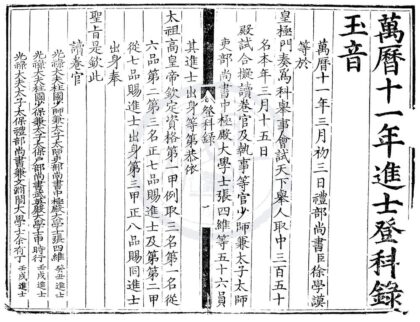 萬曆十一年進士登科錄
玉音
萬曆十一年三月初三日禮部尚書臣徐學謨
等於
皇極門奏爲科舉事會試天下舉人取中三百五十
名本年三月十五日
殿試合擬讀卷官及執事等官少師兼太子太師
吏部尚書中極殿大學士張四維等五十六員
其進士出身等第恭依
太祖高皇帝欽定資格第一甲例取三名第一名從
六品第二第三名正七品賜進士及第第二甲
從七品賜進士出身第三甲正八品賜同進士
出身奉
聖旨是欽此
讀卷官
光祿大夫柱國少師兼太子太師吏部尚書中極殿大學士張四維 癸丑進士
光祿大夫柱國少保兼太子太保戶部尚書武英殿大學士申時行 壬戌進士
光祿大夫太子太保禮部尚書兼文淵閣大學士余有丁 壬戌進士
登科錄
一